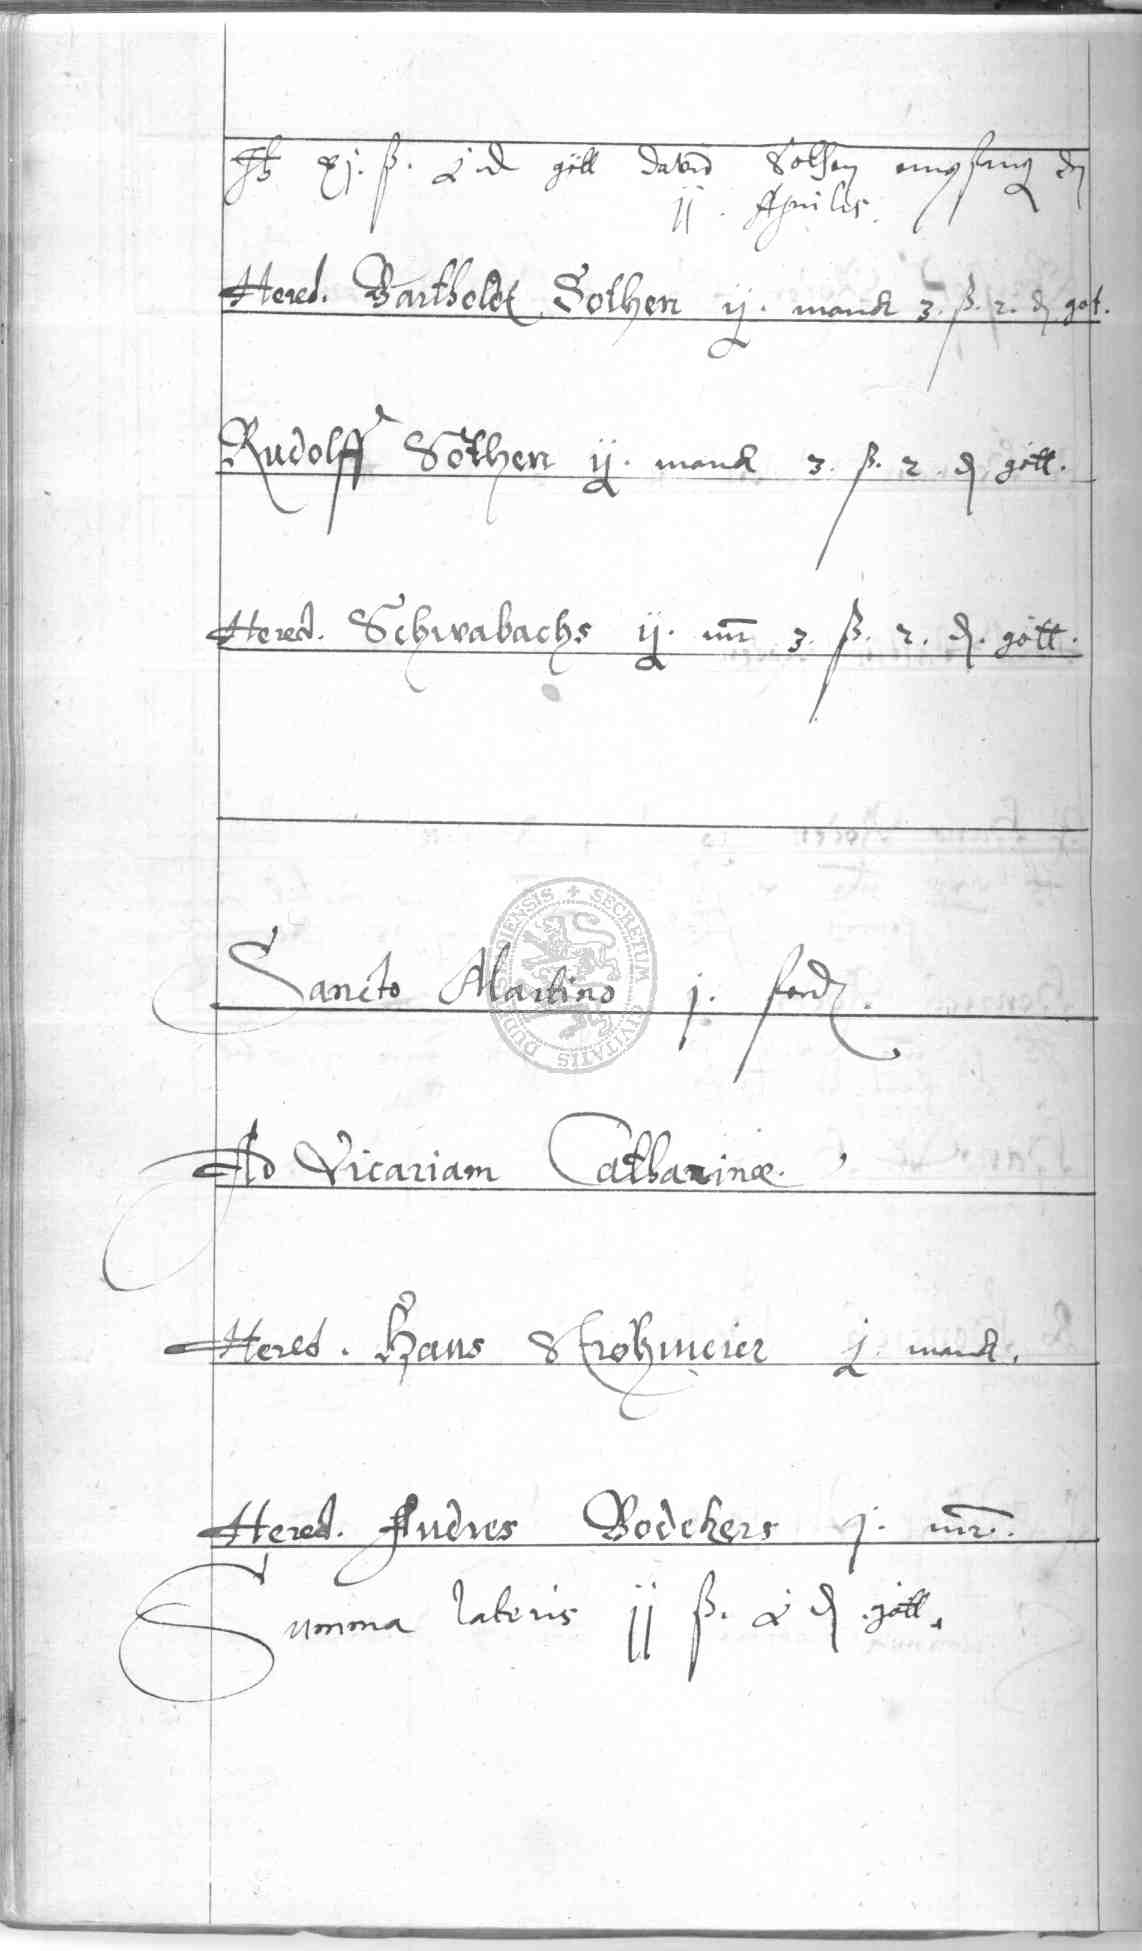 xj. ß. gött david Sothen empfing den
ij. Aprilis.
Hered. Bartholdt Sothen ij. mandt 3. ß. 2. d. got.
Rudolff Sothen ij. mandt 3. ß. 2. d gött.
Hered. Schwabachs ij. mr 3. ß. 2. d. gött.
Sancto Martino j. ford.
Ad Vicariam Catharinæ.
Hered. Hans Strohmeier j. mandt.
Hered. Andres Bodekers j. mr.
Summa lateris ij ß. d gött.
SECRETUM CIVITATIS